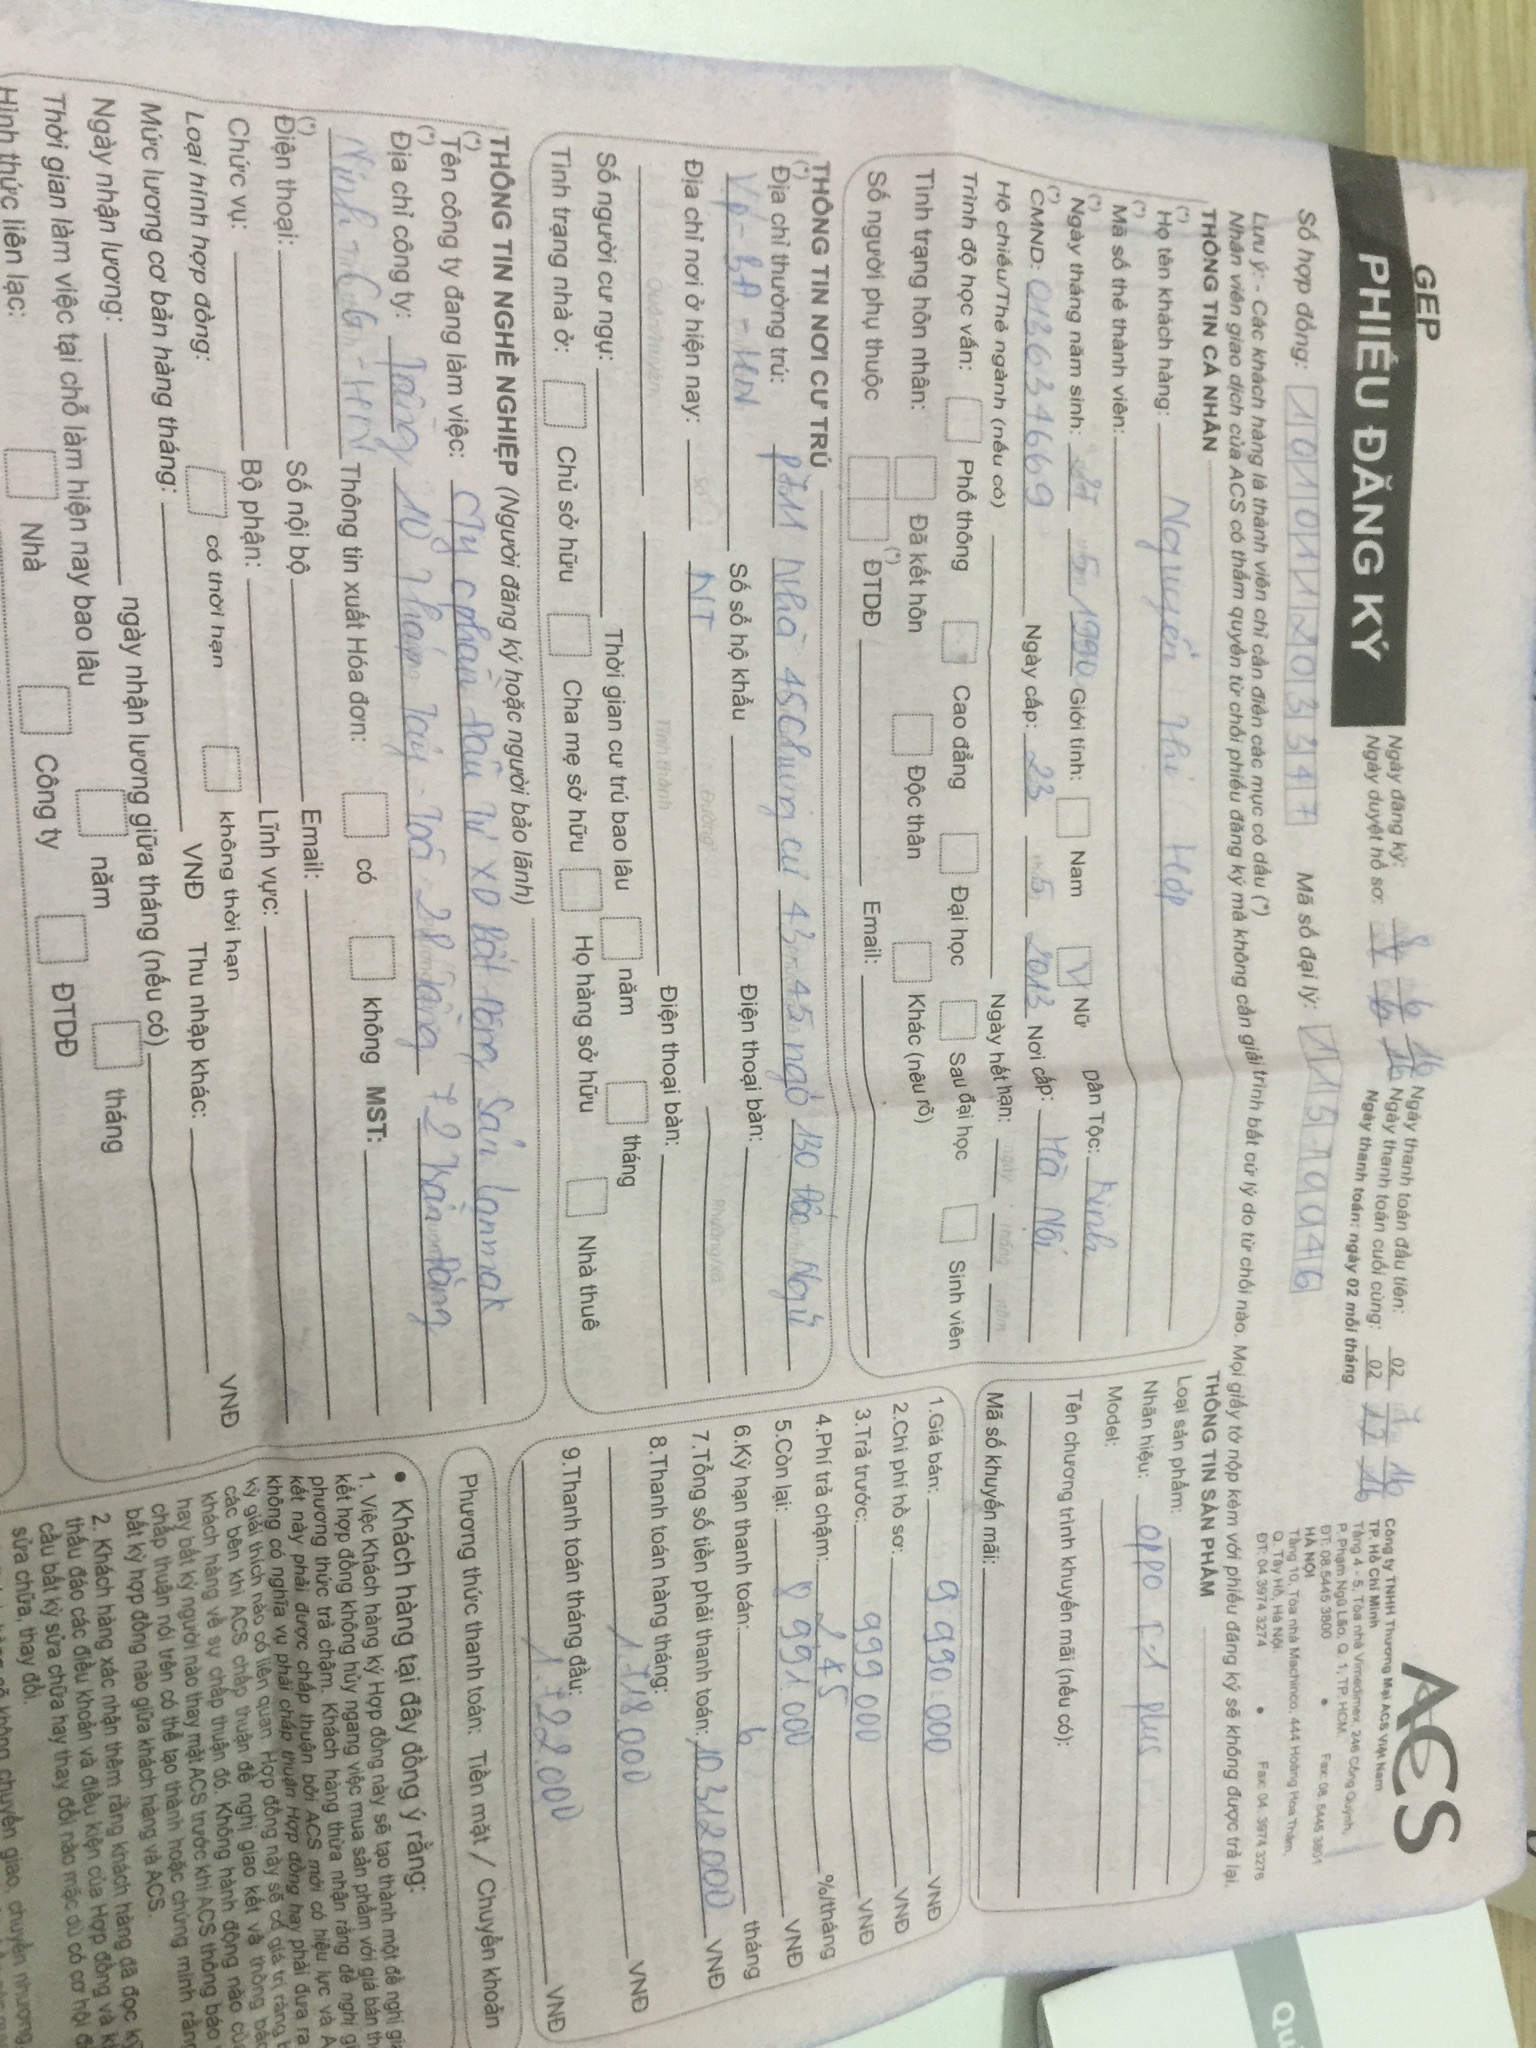 GEP
PHIẾU ĐĂNG KÝ
Ngày đăng ký: 8 6 16
Ngày duyệt hồ sơ: 6 16
Ngày thanh toán đầu tiên: 02 7 16
Ngày thanh toán cuối cùng: 02 12 16
Ngày thanh toán: ngày 02 mỗi tháng
ACS
Công ty TNHH Thương Mại ACS Việt Nam
TP. Hồ Chí Minh
Tầng 4 - 5, Tòa nhà Vimedimex, 246 Cống Quỳnh,
P. Phạm Ngũ Lão, Q. 1, TP. HCM.
ĐT: 08.5445 3800 • Fax: 08. 5445 3801
HÀ NỘI
Tầng 10, Tòa nhà Machinco, 444 Hoàng Hoa Thám,
Q. Tây Hồ, Hà Nội
ĐT: 04 3974 3274 • Fax: 04. 3974 3276
Số hợp đồng: 101011203347 Mã số đại lý:
Lưu ý: - Các khách hàng là thành viên chỉ cần điền các mục có dấu (*)
Nhân viên giao dịch của ACS có thẩm quyền từ chối phiếu đăng ký mà không cần giải trình bất cứ lý do từ chối nào. Mọi giấy tờ nộp kèm với phiếu đăng ký sẽ không được trả lại.
THÔNG TIN CÁ NHÂN
(*) Họ tên khách hàng: Nguyễn Thị Hợp
(*) Mã số thẻ thành viên:
(*) Ngày tháng năm sinh: 27 5 1990 Giới tính: Nam V Nữ Dân Tộc: Kinh
(*) CMND: 013634669 Ngày cấp: 23 5 2013 Nơi cấp: Hà Nội
Hộ chiếu/Thẻ ngành (nếu có) Ngày hết hạn: ngày tháng năm
Trình độ học vấn: Phổ thông Cao đẳng Đại học Sau đại học Sinh viên
Tình trạng hôn nhân: Đã kết hôn Độc thân Khác (nêu rõ)
Số người phụ thuộc (*) ĐTDĐ Email:
THÔNG TIN NƠI CƯ TRÚ
(*) Địa chỉ thường trú: P211 Nhà 45 Chung cư 43 45 ngõ 130 Đốc Ngữ
VP - BĐ - HN Số sổ hộ khẩu Điện thoại bàn:
Địa chỉ nơi ở hiện nay: Số NT Đường Phường/xã
Quận/huyện Tỉnh/thành Điện thoại bàn:
Số người cư ngụ: Thời gian cư trú bao lâu năm tháng
Tình trạng nhà ở: Chủ sở hữu Cha mẹ sở hữu Họ hàng sở hữu Nhà thuê
THÔNG TIN NGHỀ NGHIỆP (Người đăng ký hoặc người bảo lãnh)
(*) Tên công ty đang làm việc: Cty cphần Đầu Tư XD Bất Động Sản Lanmak
(*) Địa chỉ công ty: Tầng 10 Tháp Tây - Toà 28 Tầng 72 Trần Đăng
Ninh - HN Thông tin xuất Hóa đơn: có không MST:
(*) Điện thoại: Số nội bộ Email:
Chức vụ: Bộ phận: Lĩnh vực:
Loại hình hợp đồng: có thời hạn không thời hạn
Mức lương cơ bản hàng tháng: VNĐ Thu nhập khác: VNĐ
Ngày nhận lương: ngày nhận lương giữa tháng (nếu có)
Thời gian làm việc tại chỗ làm hiện nay bao lâu năm tháng
Hình thức liên lạc: Nhà Công ty ĐTDĐ
THÔNG TIN SẢN PHẨM
Loại sản phẩm:
Nhãn hiệu: oppo F1 plus
Model:
Tên chương trình khuyến mãi (nếu có):
Mã số khuyến mãi:
1.Giá bán: 9.990.000 VNĐ
2.Chi phí hồ sơ: VNĐ
3.Trả trước: 999.000 VNĐ
4.Phí trả chậm: 2,45 %/tháng
5.Còn lại: 8.991.000 VNĐ
6.Kỳ hạn thanh toán: 6 tháng
7.Tổng số tiền phải thanh toán: 10.312.000 VNĐ
8.Thanh toán hàng tháng:
1.718.000 VNĐ
9.Thanh toán tháng đầu:
1.722.000 VNĐ
Phương thức thanh toán: Tiền mặt / Chuyển khoản
• Khách hàng tại đây đồng ý rằng:
1. Việc Khách hàng ký Hợp đồng này sẽ tạo thành một đề nghị
kết hợp đồng không hủy ngang việc mua sản phẩm với giá bán
phương thức trả chậm. Khách hàng thừa nhận rằng đề nghị
kết này phải được chấp thuận bởi ACS mới có hiệu lực và
không có nghĩa vụ phải chấp thuận Hợp đồng hay phải đưa ra
kỳ giải thích nào có liên quan. Hợp đồng này sẽ có giá trị ràng
các bên khi ACS chấp thuận đề nghị giao kết và thông báo
khách hàng về sự chấp thuận đó. Không hành động nào
hay bất kỳ người nào thay mặt ACS trước khi ACS thông báo
chấp thuận nói trên có thể tạo thành hoặc chứng minh rằng
bất kỳ hợp đồng nào giữa khách hàng và ACS.
2. Khách hàng xác nhận thêm rằng khách hàng đã đọc
thấu đáo các điều khoản và điều kiện của Hợp đồng và
cầu bất kỳ sửa chữa hay thay đổi nào mặc dù có cơ hội
sửa chữa, thay đổi.
không chuyển giao, chuyển nhượng,